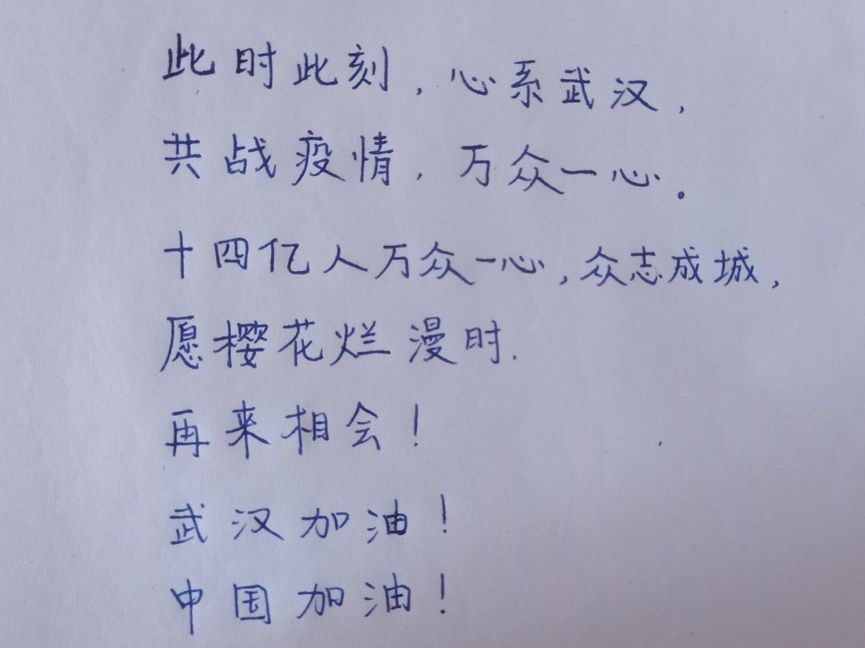 此时此刻，心系武汉，
共战疫情，万众一心。
十四亿人万众一心，众志成城，
愿樱花烂漫时.
再来相会！
武汉加油！
中国加油！